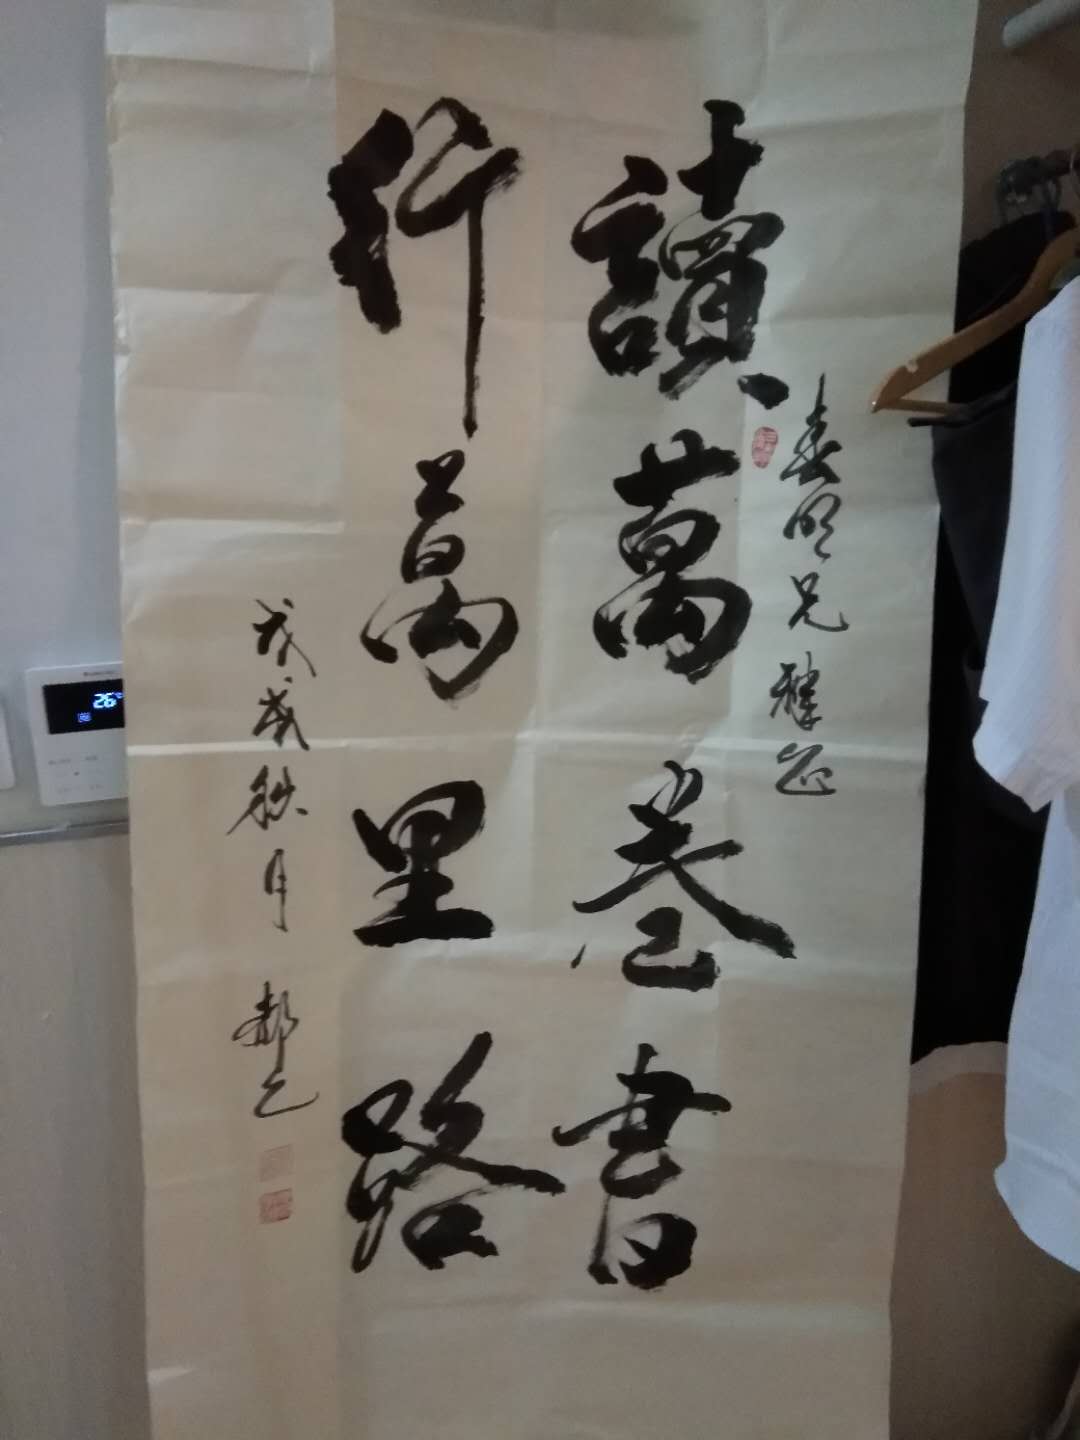 春明兄雅正
讀萬卷書
行萬里路
戊戌秋月 郝乙
26℃